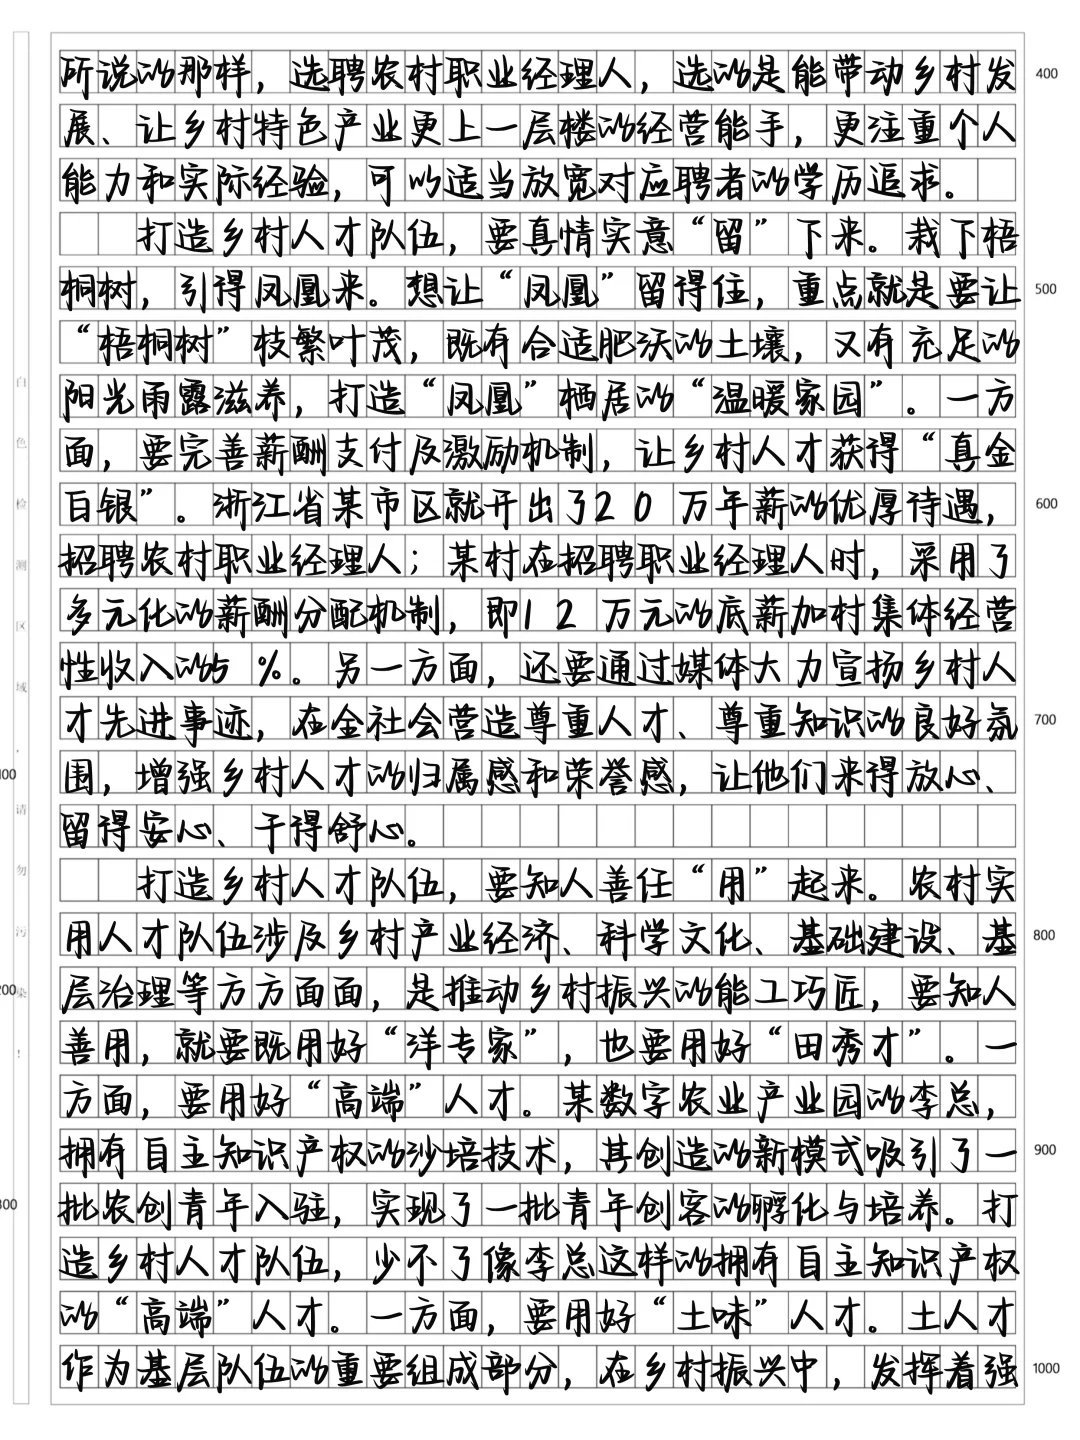 所说的那样，选聘农村职业经理人，选的是能带动乡村发 400
展、让乡村特色产业更上一层楼的经营能手，更注重个人
能力和实际经验，可以适当放宽对应聘者的学历追求。
打造乡村人才队伍，要真情实意“留”下来。栽下梧
桐树，引得凤凰来。想让“凤凰”留得住，重点就是要让 500
“梧桐树”枝繁叶茂，既有合适肥沃的土壤，又有充足的
阳光雨露滋养，打造“凤凰”栖居的“温暖家园”。一方
面，要完善薪酬支付及激励机制，让乡村人才获得“真金
白银”。浙江省某市区就开出了20万年薪的优厚待遇， 600
招聘农村职业经理人；某村在招聘职业经理人时，采用了
多元化的薪酬分配机制，即12万元的底薪加村集体经营
性收入的5%。另一方面，还要通过媒体大力宣扬乡村人
才先进事迹，在全社会营造尊重人才、尊重知识的良好氛 700
围，增强乡村人才的归属感和荣誉感，让他们来得放心、
留得安心、干得舒心。
打造乡村人才队伍，要知人善任“用”起来。农村实
用人才队伍涉及乡村产业经济、科学文化、基础建设、基 800
层治理等方方面面，是推动乡村振兴的能工巧匠，要知人
善用，就要既用好“洋专家”，也要用好“田秀才”。一
方面，要用好“高端”人才。某数字农业产业园的李总，
拥有自主知识产权的沙培技术，其创造的新模式吸引了一 900
批农创青年入驻，实现了一批青年创客的孵化与培养。打
造乡村人才队伍，少不了像李总这样的拥有自主知识产权
的“高端”人才。一方面，要用好“土味”人才。土人才
作为基层队伍的重要组成部分，在乡村振兴中，发挥着强 1000
白色检测区域，请勿污染！